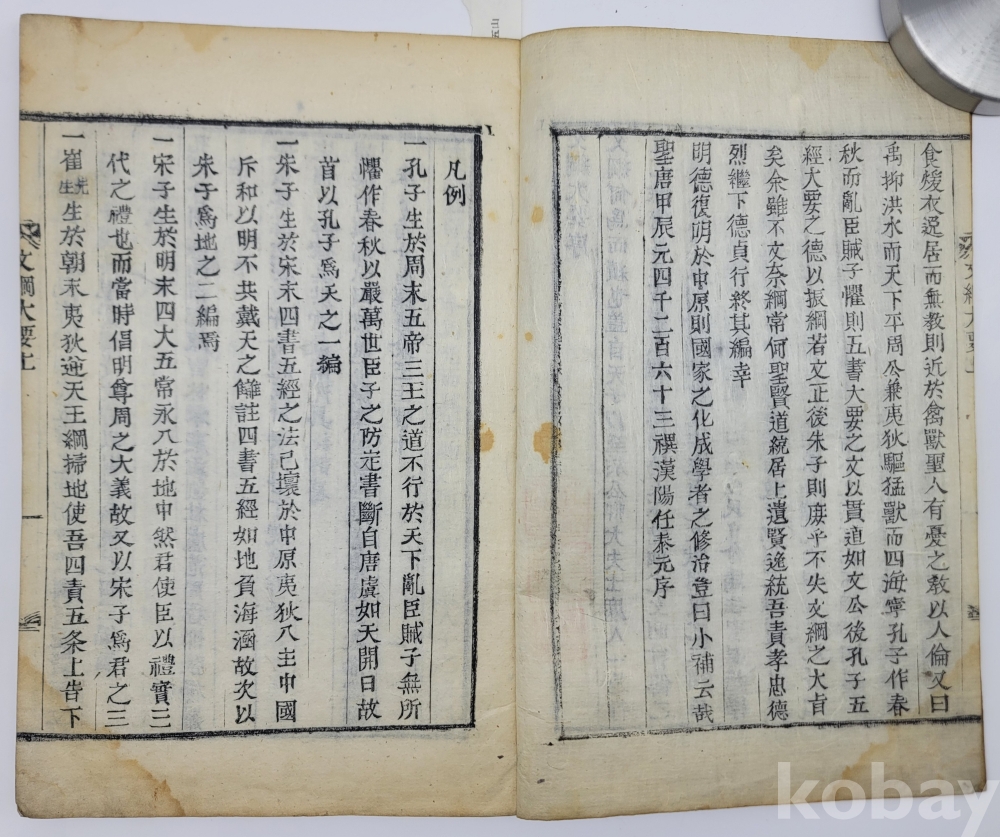 食煖衣逸居而無教則近於禽獸聖人有憂之敎以人倫又曰
禹抑洪水而天下平周公兼夷狄驅猛獸而四海寧孔子作春
秋而亂臣賊子懼則五書大要之文以貫道如文公後孔子五
經大要之德以振綱若文正後朱子則庶乎不失文綱之大旨
矣余雖不文奈綱常何聖賢道統居上遺賢逸統吾責孝忠德
烈繼下德貞行終其編幸
明德復明於中原則國家之化成學者之修治豈曰小補云哉
聖唐甲辰元四千二百六十三禩漢陽任泰元序
凡例
一孔子生於周末五帝三王之道不行於天下亂臣賊子無所
懼作春秋以嚴萬世臣子之防定書斷自唐虞如天開日故
首以孔子爲天之一編
一朱子生於宋末四書五經之法已壞於中原夷狄入主中國
斥和以明不共戴天之讎註四書五經如地負海涵故次以
朱子爲地之二編焉
一宋子生於明末四大五常永入於地中然君使臣以禮實三
代之禮也而當時倡明尊周之大義故又以宋子爲君之三
一崔先生生於朝末夷狄迎天王綱掃地使吾四責五条上告下
文綱大要上
文綱大要上
kobay